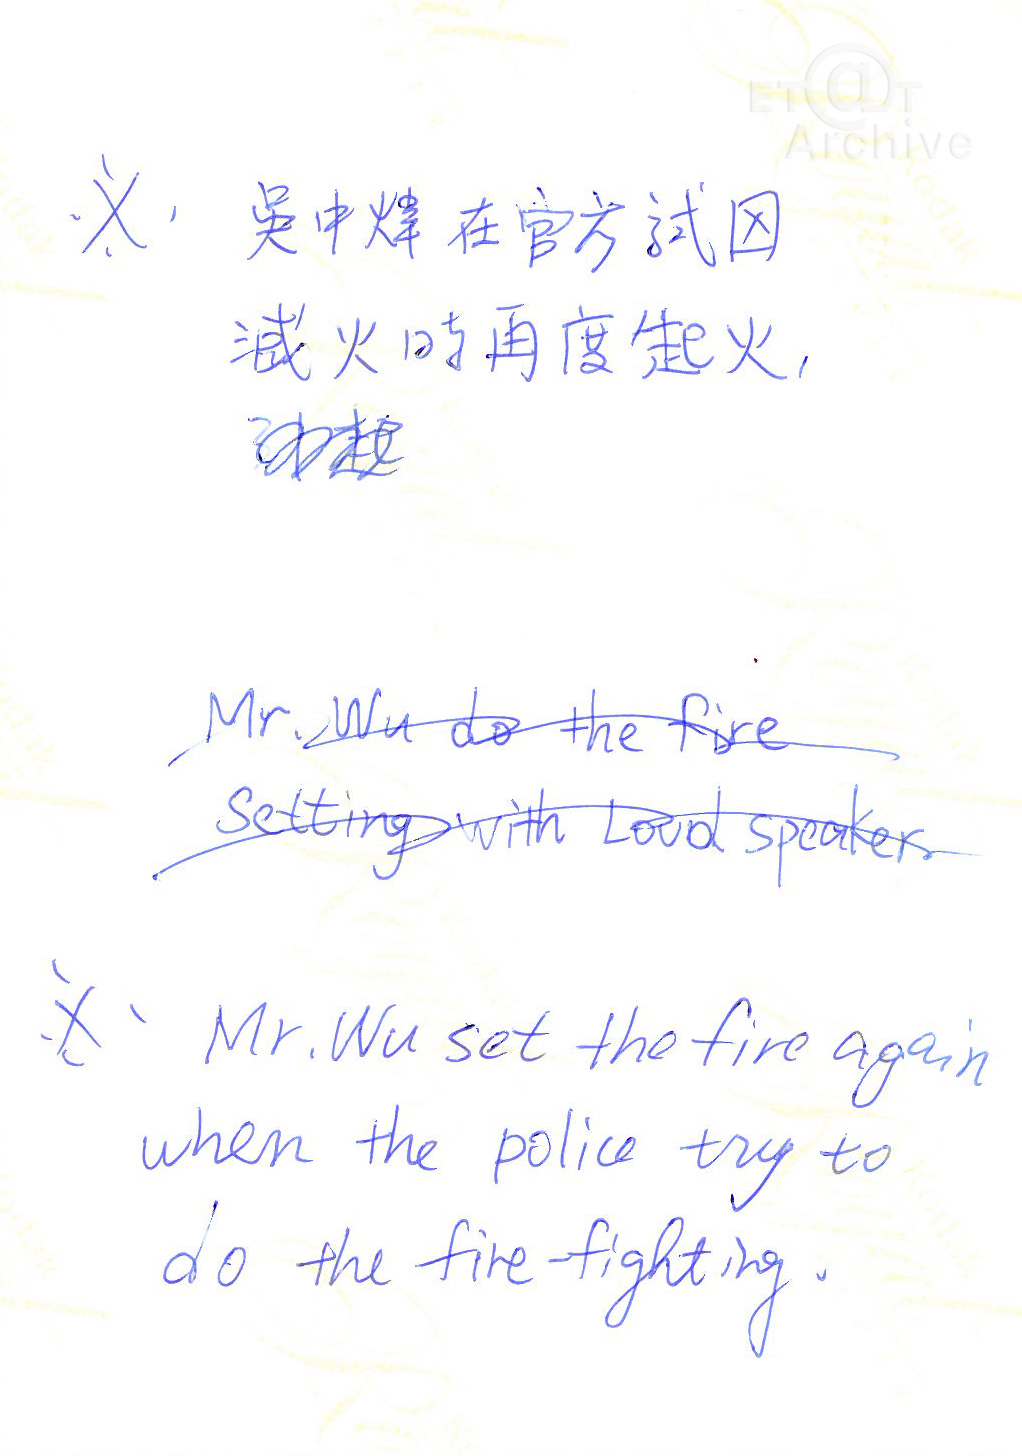 ET@T
Archive
※, 吳中煒在官方試図
滅火時再度起火,
Mr. Wu do the fire
Setting with Loud speaker
※、 Mr. Wu set the fire again
when the police try to
do the fire-fighting.